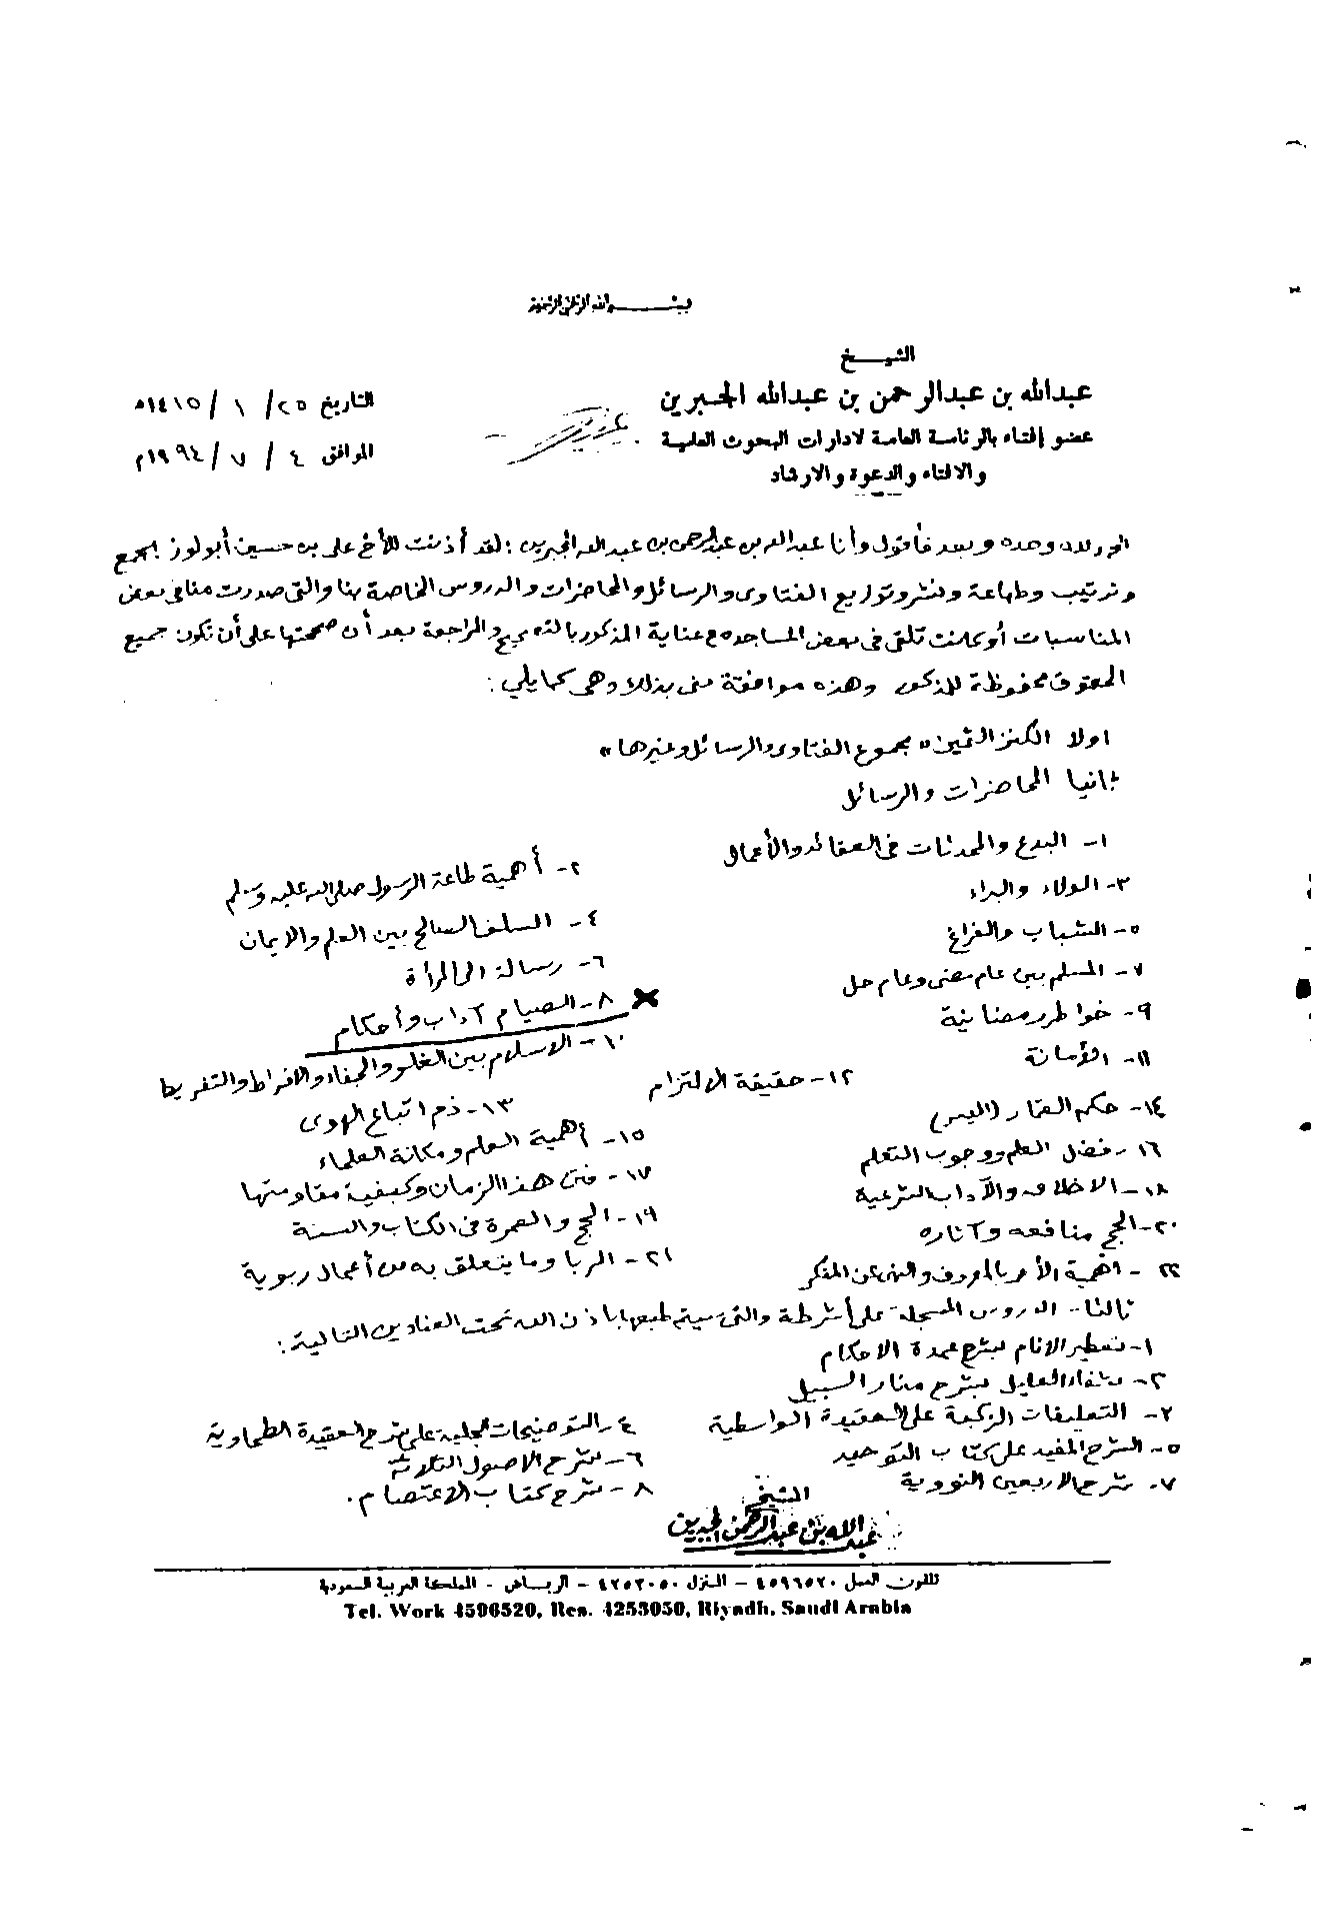 بسم الله الرحمن الرحيم
الشيخ
عبدالله بن عبدالرحمن بن عبدالله الجبرين
عضو إفتاء بالرئاسة العامة لادارات البحوث العلمية
والافتاء والدعوة والارشاد
التاريخ ٢٥/ ١/ ١٤١٥هـ
الموافق ٤ / ٧ / ١٩٩٤م
الحمد لله وحده وبعد فأقول وأنا عبدالله بن عبدالرحمن بن عبدالله الجبرين: لقد أذنت للأخ علي بن حسين أبولوز بجمع
وترتيب وطباعة ونشر وتوزيع الفتاوى والرسائل والمحاضرات والدروس الخاصة بنا والتي صدرت منا في بعض
المناسبات أو كانت تلقى في بعض المساجد مع عناية المذكور بالتخريج والمراجعة بعد أن صححتها على أن تكون جميع
الحقوق محفوظة للمذكور وهذه موافقة مني بذلك وهي كمايلي:
اولا الكنز الثمين «مجموع الفتاوى والرسائل وغيرها»
ثانيا المحاضرات والرسائل
١- البدع والمحدثات في العقائد والأعمال
٢- أهمية طاعة الرسول صلى الله عليه وسلم
٣- الولاء والبراء
٤- السلف الصالح بين العلم والايمان
٥- الشباب والفراغ
٦- رسالة الى المرأة
٧- المسلم بين عام مضى وعام حل
٨- الصيام آداب وأحكام
٩- خواطر رمضانية
١٠- الاسلام بين الغلو والجفاء والافراط والتفريط
١١- الأمانة
١٢- حقيقة الالتزام
١٣- ذم اتباع الهوى
١٤- حكم القمار (الميسر)
١٥- أهمية العلم ومكانة العلماء
١٦- فضل العلم ووجوب التعلم
١٧- فتن هذا الزمان وكيفية مقاومتها
١٨- الاخلاق والآداب الشرعية
١٩- الحج والعمرة في الكتاب والسنة
٢٠- الحج منافعه وآثاره
٢١- الربا وما يتعلق به من أعمال ربوية
٢٢- أهمية الأمر بالمعروف والنهي عن المنكر
ثالثا- الدروس المسجلة على أشرطة والتي سيتم طبعها باذن الله تحت العناوين التالية:
١- تعطير الانام بشرح عمدة الاحكام
٢- شفاء العليل بشرح منار السبيل
٣- التعليقات الزكية على العقيدة الواسطية
٤- التوضيحات الجلية على شرح العقيدة الطحاوية
٥- الشرح المفيد على كتاب التوحيد
٦- شرح الاصول الثلاثة
٧- شرح الاربعين النووية
٨- شرح كتاب الاعتصام.
الشيخ
عبدالله بن عبدالرحمن الجبرين
تلفون العمل ٤٥٩٦٥٢٠ - المنزل ٤٢٥٣٠٥٠ - الرياض - المملكة العربية السعودية
Tel. Work 4596520, Res. 4253050, Riyadh, Saudi Arabia